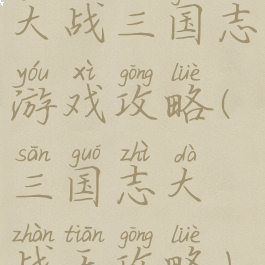 大战三国志
yóu xì gōng lüè
游戏攻略(
sān guó zhì dà
三国志大
zhàn tiān gōng lüè
战天攻略)